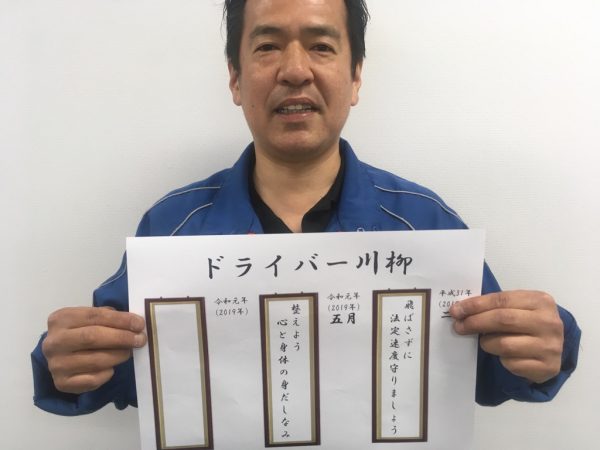 ドライバー川柳
平成31年
飛ばさずに
法定速度守りましょう
令和元年
(2019年)
五月
整えよう
心と身体の身だしなみ
令和元年
(2019年)